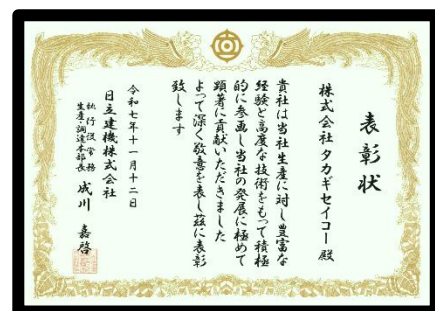 表彰状
株式会社 タカギセイコー 殿
貴社は当社生産に対し豊富な
経験と高度な技術をもって積極
的に参画し当社の発展に極めて
顕著に貢献いただきました
よって深く敬意を表し茲に表彰
致します
令和七年十一月十二日
日立建機株式会社
執行役常務
生産・調達本部長 成川 嘉啓